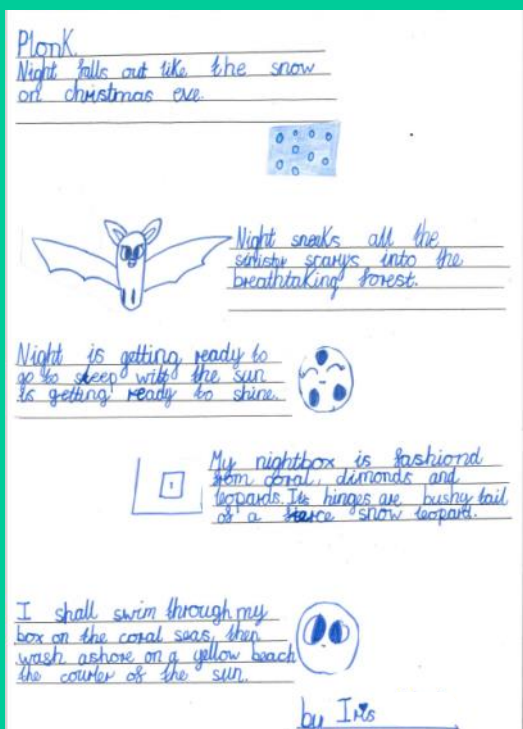 Plonk.
Night falls out like the snow
on christmas eve.
Night sneaks all the
sinister scarys into the
breathtaking forest.
Night is getting ready to
go to sleep the sun
is getting ready to shine.
My nightbox is fashiond
from coral, dimonds and
leopards. Its hinges are bushy tail
of a fierce snow leopard.
I shall swim through my
box on the coral seas, then
wash ashore on a yellow beach
the couler of the sun.
by Iris